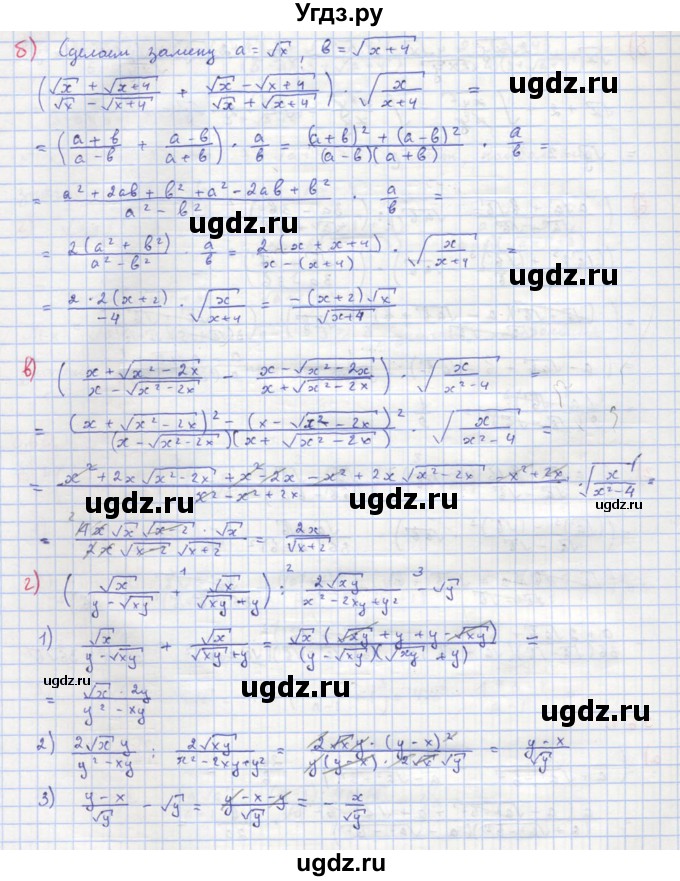 Угдз.ру
б) Сделаем замену a = √x, в = √(x+4)
((√x + √(x+4))/(√x − √(x+4)) + (√x − √(x+4))/(√x + √(x+4))) · √(x/(x+4)) =
ugdz.ru
= ((a+в)/(a−в) + (a−в)/(a+в)) · a/в = ((a+в)² + (a−в)²)/((a−в)(a+в)) · a/в =
= (a² + 2aв + в² + a² − 2aв + в²)/(a² − в²) · a/в =
ugdz.ru
= 2(a² + в²)/(a² − в²) a/в = 2(x + x+4)/(x − (x+4)) · √(x/(x+4)) =
ugdz.ru
ugdz.ru
= 2·2(x+2)/(−4) · √(x/(x+4)) = −(x+2)√x/√(x+4)
в) ((x + √(x²−2x))/(x − √(x²−2x)) − (x − √(x²−2x))/(x + √(x²−2x))) · √(x/(x²−4)) =
= ((x + √(x²−2x))² − (x − √(x²−2x))²)/((x − √(x²−2x))(x + √(x²−2x))) · √(x/(x²−4)) =
= (x² + 2x√(x²−2x) + x² − 2x − x² + 2x√(x²−2x) − x² + 2x)/(x² − x² + 2x) · √(x/(x²−4)) =
ugdz.ru
ugdz.ru
= (4x√x √(x−2) · √x)/(2x√(x−2) √(x+2)) = 2x/√(x+2)
г) (√x/(y − √xy) +¹ √x/(√xy + y)) :² 2√xy/(x² − 2xy + y²) −³ √y
1) √x/(y − √xy) + √x/(√xy + y) = √x(√xy + y + y − √xy)/((y − √xy)(√xy + y)) =
ugdz.ru
ugdz.ru
= √x · 2y/(y² − xy)
2) 2√x y/(y² − xy) : 2√xy/(x² − 2xy + y²) = 2√x y · (y−x)²/(y(y−x) · 2√x √y) = (y−x)/√y
ugdz.ru
ugdz.ru
3) (y−x)/√y − √y = (y−x−y)/√y = −x/√y
ugdz.ru